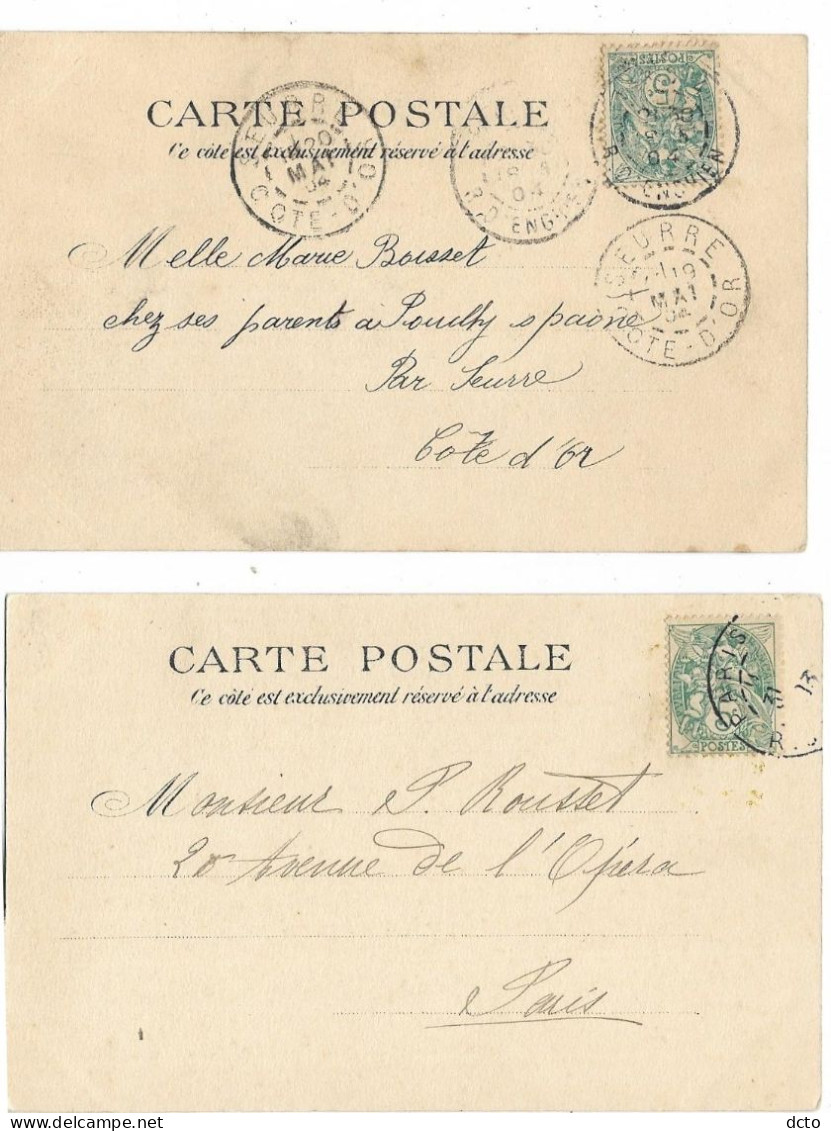 CARTE POSTALE
Ce côté est exclusivement réservé à l'adresse
SEURRE
20
MAI
04
COTE-D'OR
04
POSTES
5
04
SEURRE
19
MAI
04
COTE-D'OR
Melle Marie Bousset
chez ses parents à Pouilly s paône
Par Seurre
Côte d'Or
CARTE POSTALE
Ce côté est exclusivement réservé à l'adresse
POSTES
PARIS
31
13
R.
Monsieur P. Rousset
20 Avenue de l'Opéra
Paris
dcto